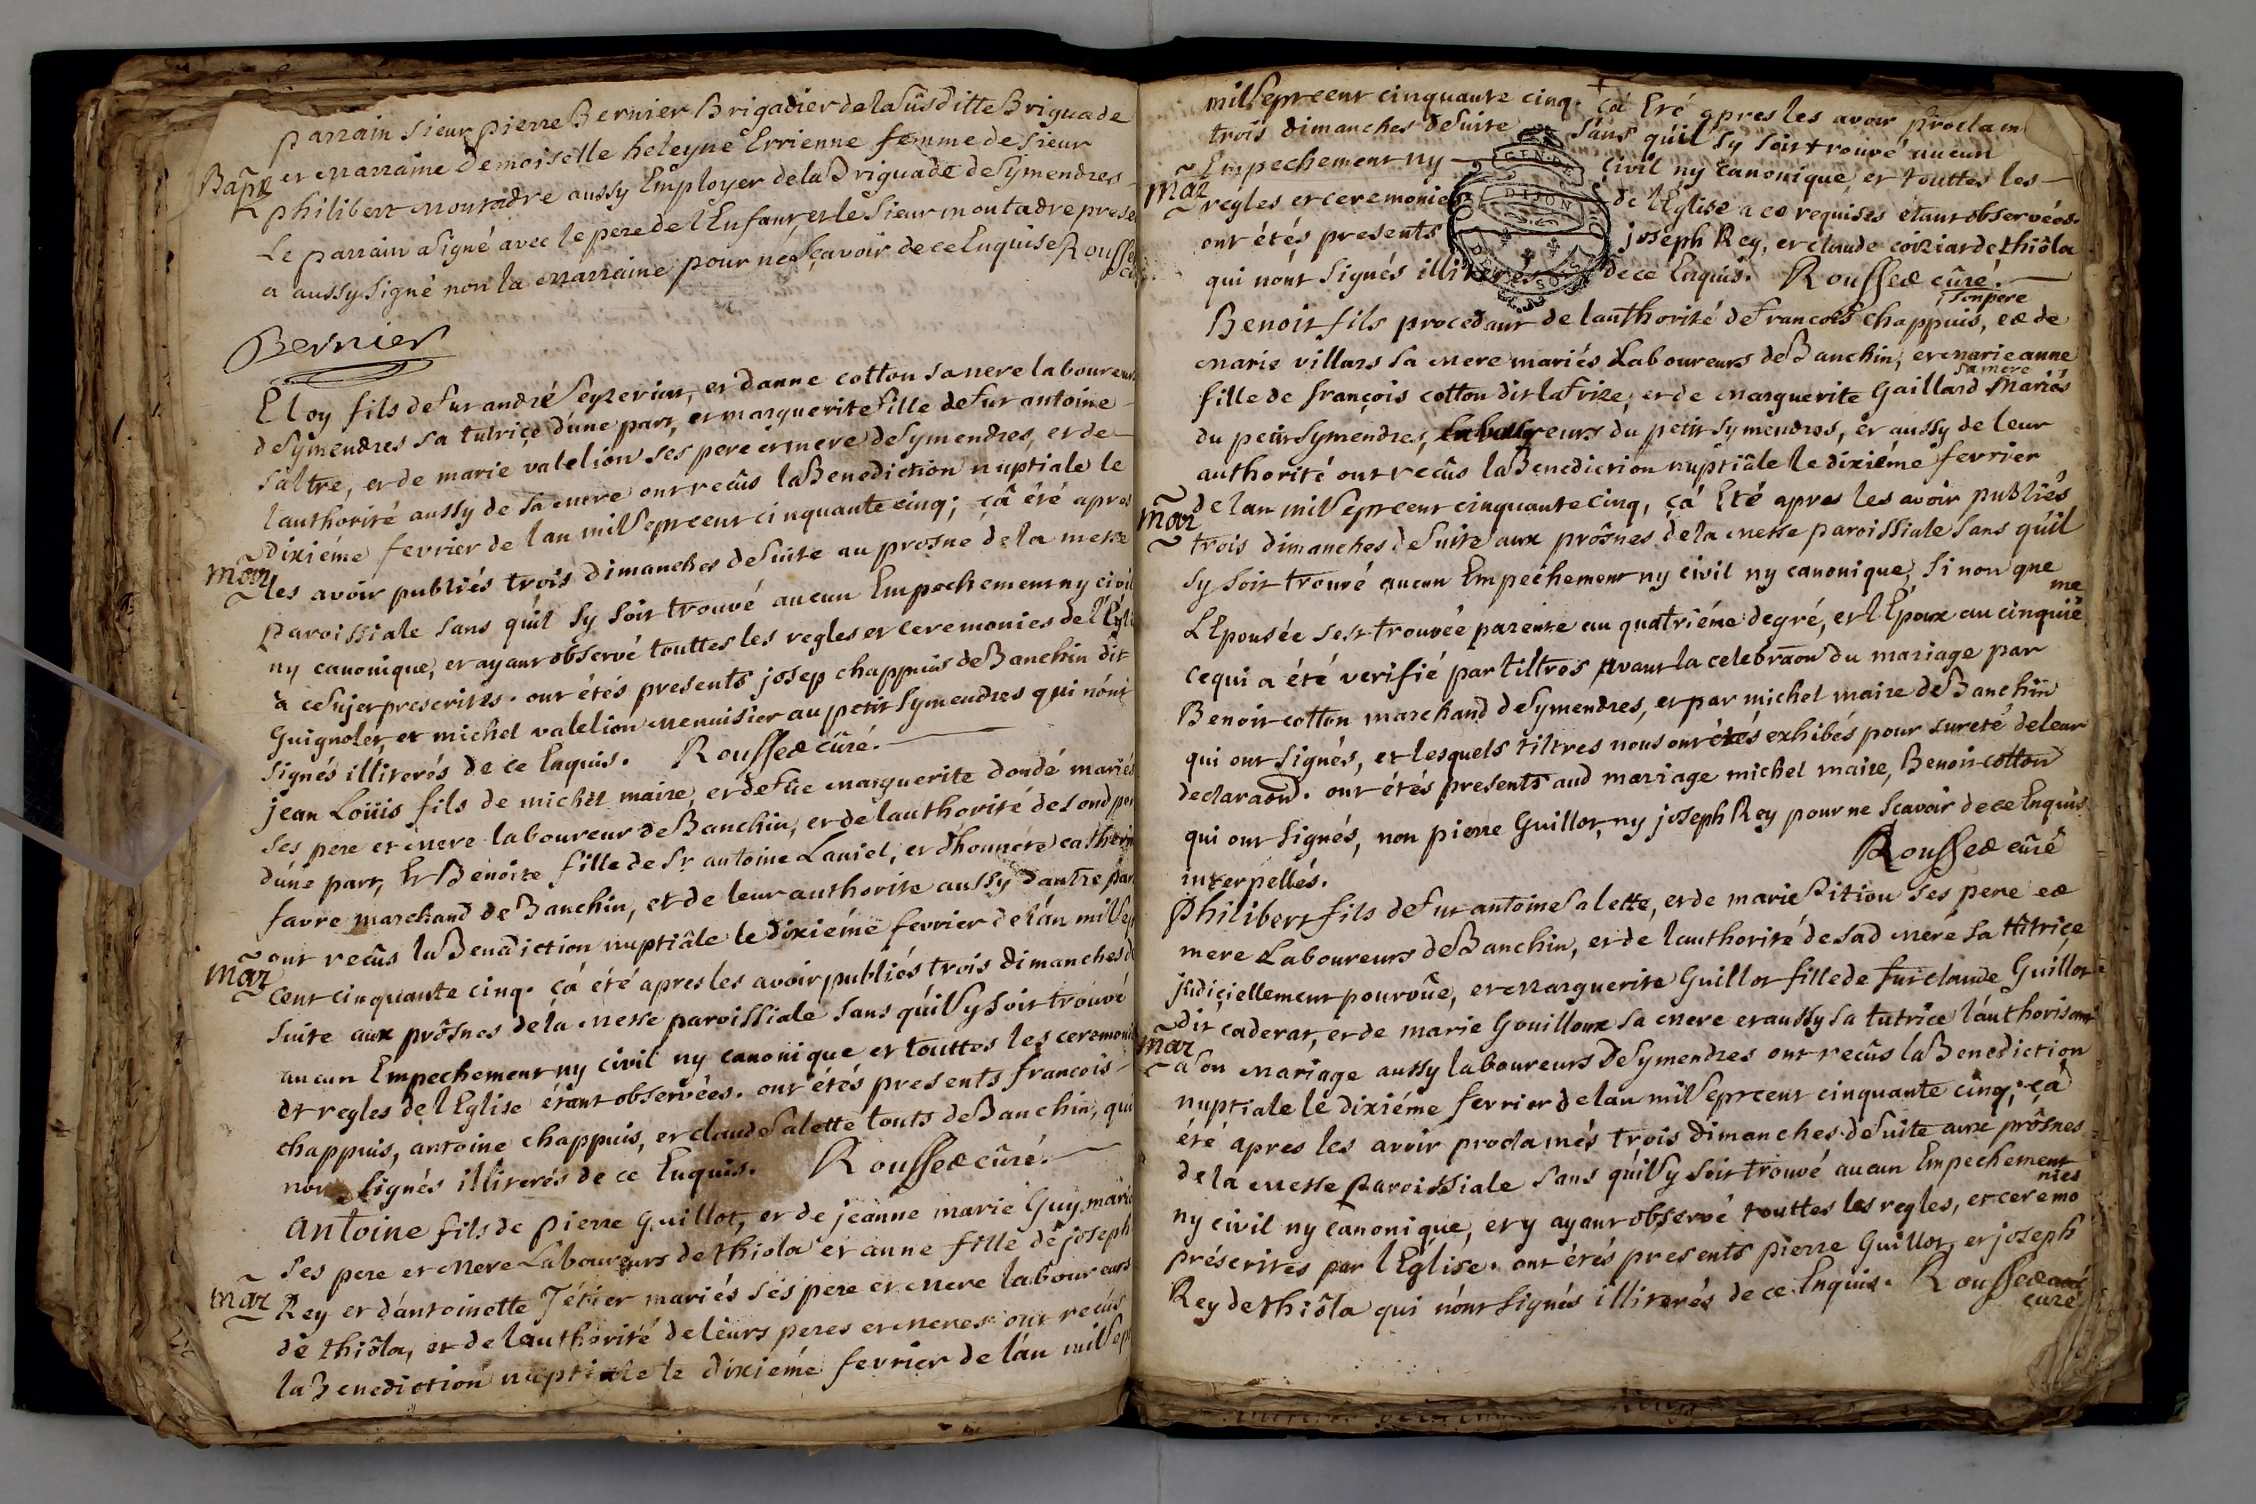 parrain Sieur pierre Bernier Brigadier de la susditte Briguade
Bapt et marraine Demoiselle heleyne Errienne femme de Sieur
philibert moutadre aussy Employer de la Briguade de Symendres
Le parrain a signé avec le pere de l'Enfant, et le Sieur moutadre prese
a aussy signé non la marraine pour ne sçavoir de ce Enquise
Bernier
Eloy fils de fut andré Seyzeriat, et d'anne cotton sa mere laboureurs
de Symendres sa tutrice d'une part, et marguerite fille de fut antoine
Saltre, et de marie valelion ses pere et mere de Symendres, et de
l'authorité aussy de sa mere ont recûs la Benediction nuptiale le
dixiéme fevrier de l'an mil sept cent cinquante cinq; çâ été apres
mar les avoir publiés trois dimanches de suite au prosne de la messe
paroissiale sans qu'il sy soit trouvé aucun Empechement ny civil
ny canonique, et ayant observé touttes les regles et ceremonies de l'Egli
à ce sujet prescrites. ont étés presents josep chappuis de Banchin dit
Guignolet, et michel valelion menuisier au petit Symendres qui n'ont
signés illiterés de ce Enquis. Roussed cûré.
jean Loüis fils de michel maire, et de fue marguerite dondé mariés
ses pere et mere laboureur de Banchin, et de l'authorité de sond per
d'une part, Et Benoite fille de sr antoine Laniel, et d'honnéte catherin
favre marchand de Banchin, et de leur authorite aussy d'autre par
ont recûs la Benediction nuptiâle le dixiéme fevrier de l'an mil sep
mar cent cinquante cinq. çá été apres les avoir publiés trois dimanches d
suite aux prôsnes de la messe paroissiale sans qu'il sy soit trouvé
aucun Empechement ny civil ny canonique et touttes les ceremoni
et regles de l'Eglise étant observées. ont étés presents francois
chappuis, antoine chappuis, et claude Salette touts de Banchin, qui
n'ont signés illiterés de ce Enquis. Roussed cûré.
antoine fils de pierre Guillot, et de jeanne marie Guy marié
ses pere et mere Laboureurs de thiola et anne fille de joseph
mar Rey et d'antoinette Tétier mariés ses pere et mere laboureurs
de thiôla, et de l'authorité de leurs peres et meres ont recûs
la Benediction nuptiale le dixiéme fevrier de l'an mil sept
mil sept cent cinquante cinq. çá Eté apres les avoir proclam
trois dimanches de suite sans qu'il sy soit trouvé aucun
Empechement ny civil ny canonique, et touttes les
mar regles et ceremonies de l'Eglise a ce requises etant observées.
ont étés presents joseph Rey, et claude coiziar de thiôla
qui n'ont signés illiterés de ce Enquis. Roussed cûré.
son pere
Benoit fils procedant de l'authorité de francois chappuis, et de
marie villars sa mere mariés Laboureurs de Banchin, et marie anne
sa mere
fille de françois cotton dit lafrize, et de marguerite Gaillard mariés
du petit Symendres, laboureurs du petit Symendres, et aussy de leur
authorité ont recûs la Benediction nuptiâle le dixiéme fevrier
mar de l'an mil sept cent cinquante cinq, çá Eté apres les avoir publiés
trois dimanches de suite aux prôsnes de la messe paroissiale sans qu'il
sy soit trouvé aucun Empechement ny civil ny canonique, si non que
L'Epousée s'est trouvée parente au quatriéme degré, et l'Epoux au cinquiéme
ce qui a été verifié par tiltres avant la celebraõn du mariage par
Benoit cotton marchand de Symendres, et par michel maire de Banchin
qui ont signés, et lesquels tiltres nous ont étés exhibés pour sureté de leur
declaraõn. ont étés presents aud mariage michel maire, Benoit cotton
qui ont signés, non pierre Guillot, ny joseph Rey pour ne scavoir de ce Enquis
interpellés. Roussed cûré
Philibert fils de fut antoine Salette, et de marie Pition ses pere et
mere Laboureurs de Banchin, et de l'authorité de sad mere sa tûtrice
jûdiciellement pourvûe, et marguerite Guillot fille de fut claude Guillot
dit caderat, et de marie Gouilloux sa mere et aussy sa tutrice l'authorisant
mar a son mariage aussy laboureurs de Symendres ont recûs la Benediction
nuptiale le dixiéme fevrier de l'an mil sept cent cinquante cinq, çá
été apres les avoir proclamés trois dimanches de suite aux prôsnes
de la messe Paroissiale sans qu'il sy soit trouvé aucun Empechement
ny civil ny canonique, et y ayant observé touttes les regles, et ceremonies
préscrites par l'Église. ont étés presents pierre Guillot, et joseph
Rey de thiôla qui n'ont signés illiterés de ce Enquis. Roussed
curé